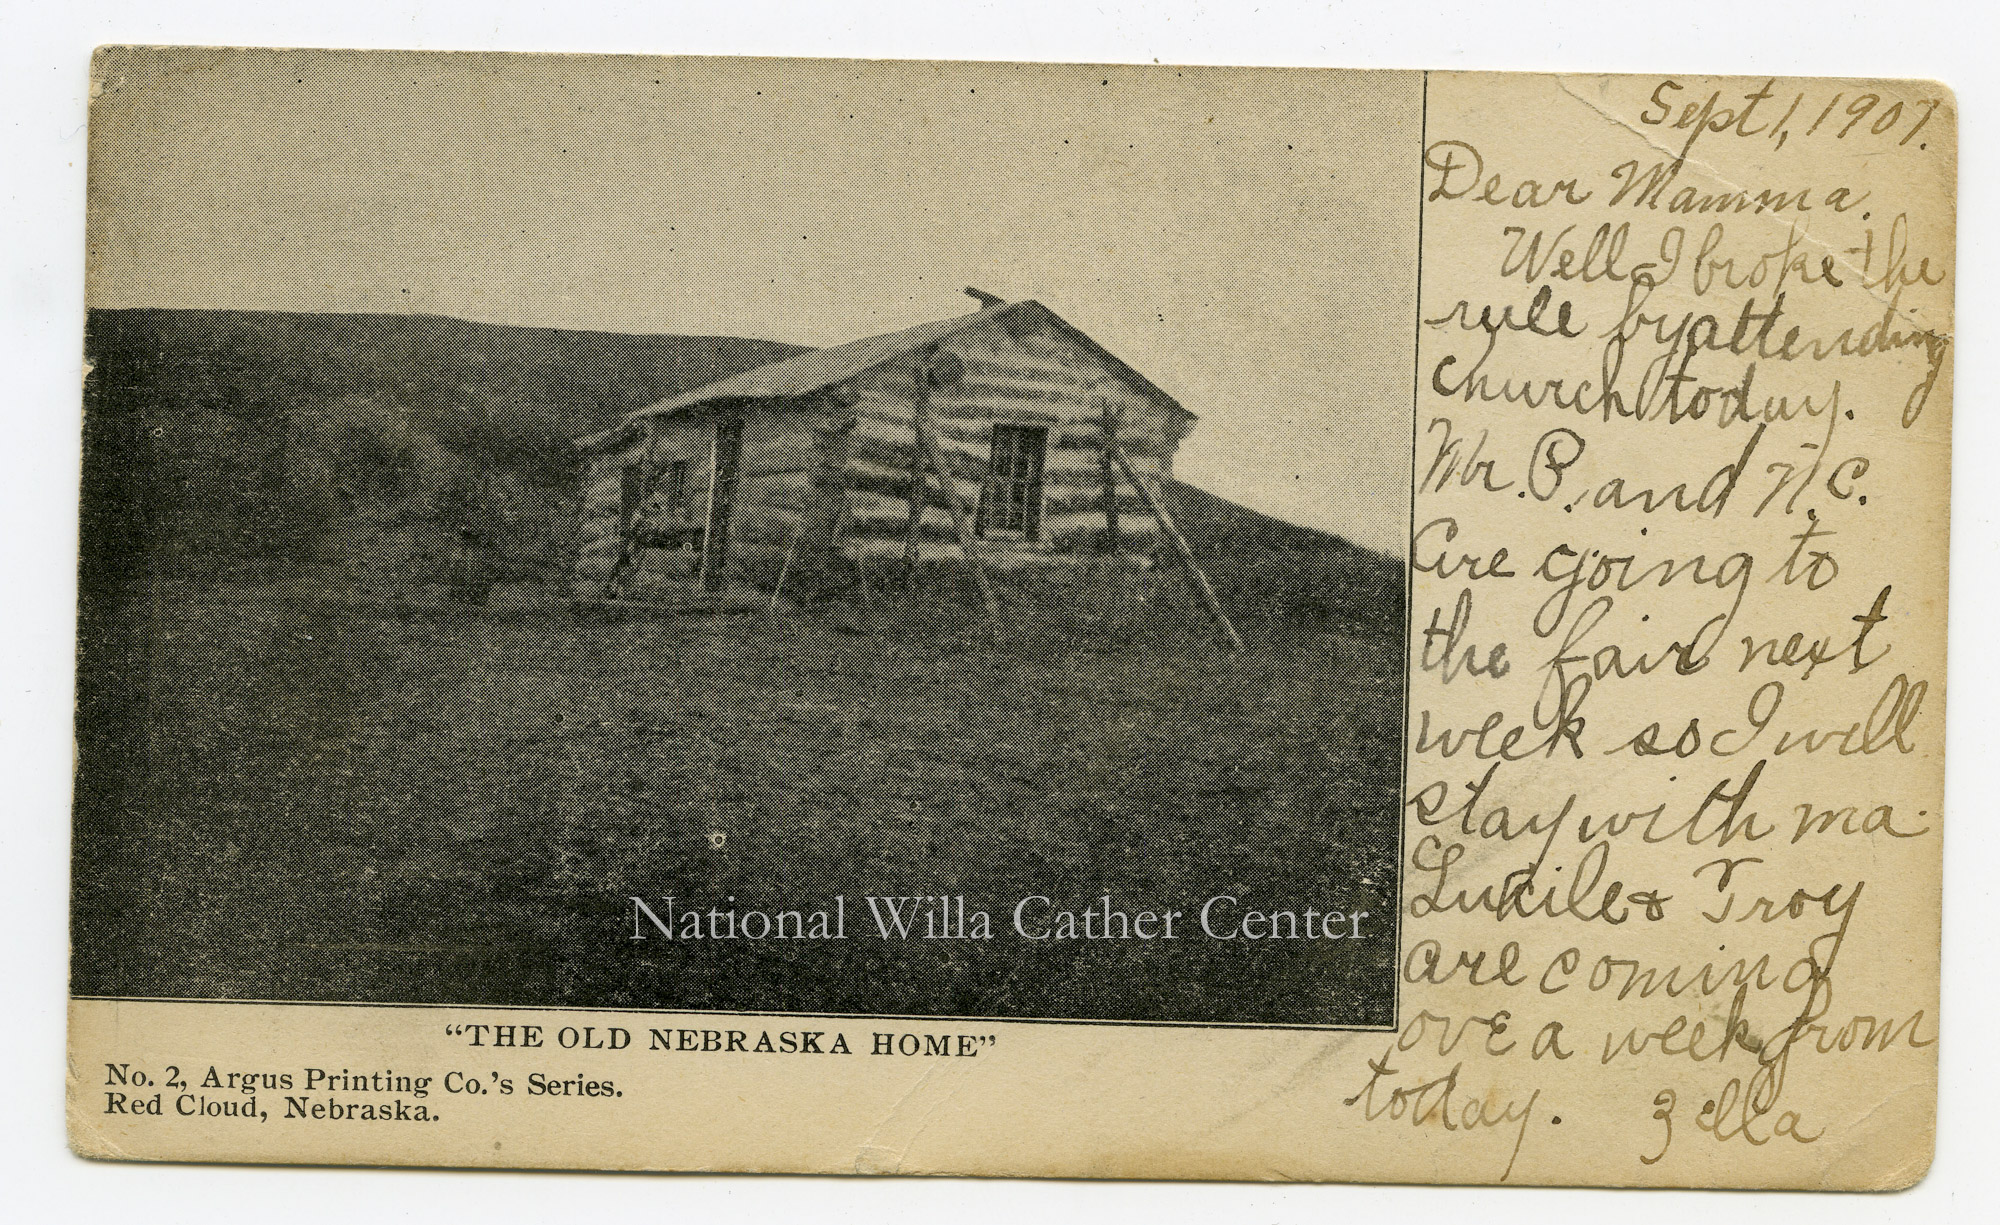 Sept 1, 1907.
Dear Mamma.
Well I broke the
rule by attending
church today.
Mr. P. and N. C.
Are going to
the fair next
week so I will
stay with ma.
Lucile & Troy
are coming
ove a week from
today. Zella
National Willa Cather Center
"THE OLD NEBRASKA HOME"
No. 2, Argus Printing Co.'s Series.
Red Cloud, Nebraska.